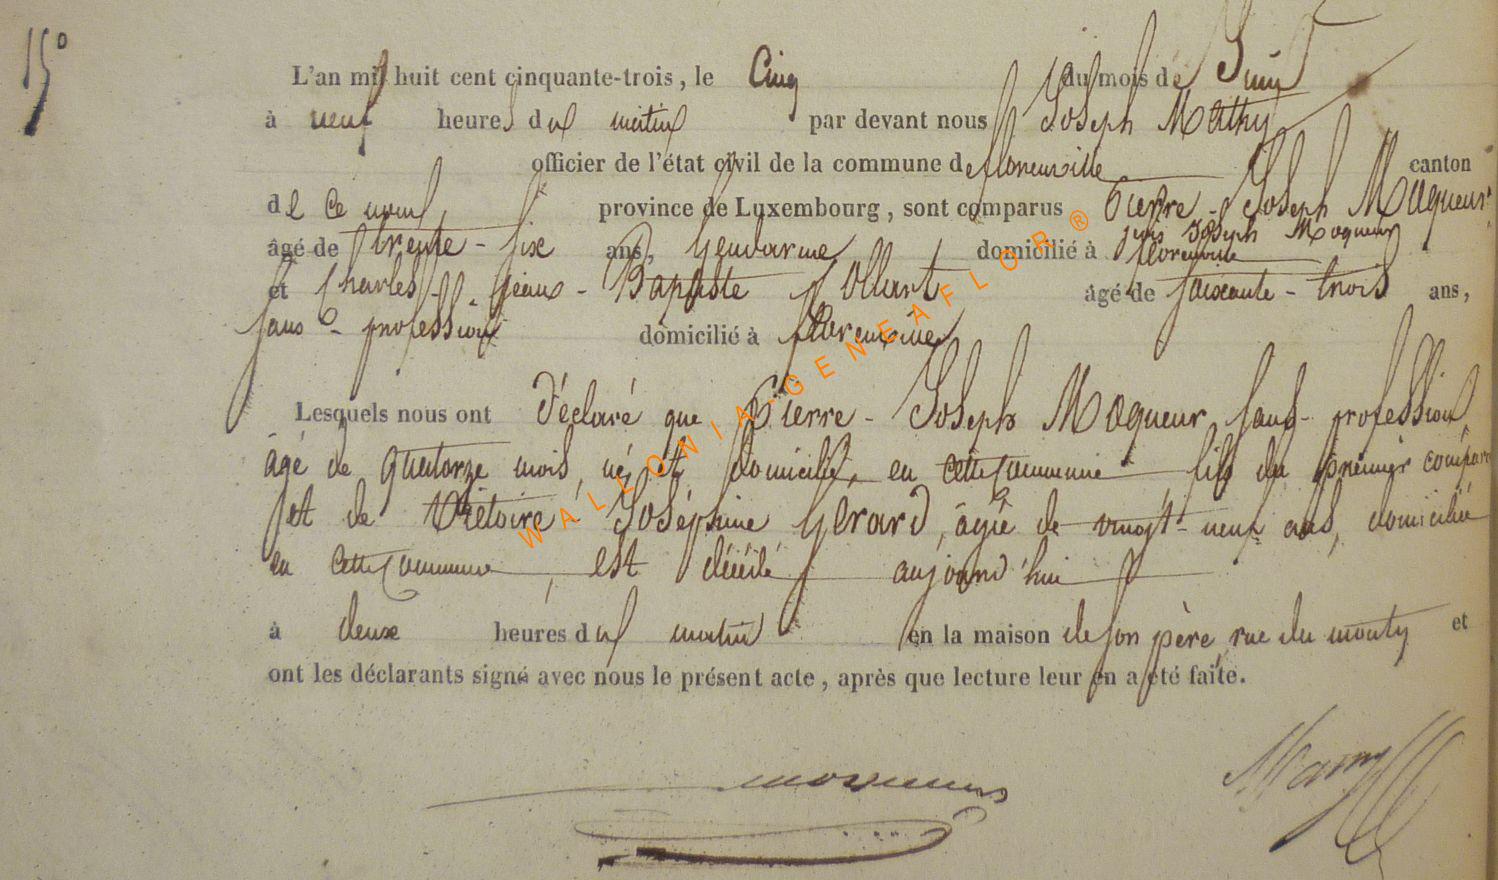 15°
L'an mil huit cent cinquante-trois, le Cinq du mois de Juin
à neuf heures du matin par devant nous Joseph Mathy
officier de l'état civil de la commune de florenville canton
de ce nom, province de Luxembourg, sont comparus Pierre-Joseph Moqueur
âgé de trente-six ans, Gendarme domicilié à florenville
Joseph Moqueur
et Charles-Jean-Baptiste âgé de soixante-trois ans,
sans-profession domicilié à florenville
Lesquels nous ont déclaré que Pierre-Joseph Moqueur, sans-profession,
âgé de quatorze mois, né et domicilié, en cette commune fils du premier comparu
et de Victoire Joséphine Gérard, âgée de vingt-neuf ans, domiciliée
en cette commune, est décédé aujourd'hui
à deux heures du matin en la maison de son père, rue du et
ont les déclarants signé avec nous le présent acte, après que lecture leur en a été faite.
WALLONIA-GENEAFLOR®